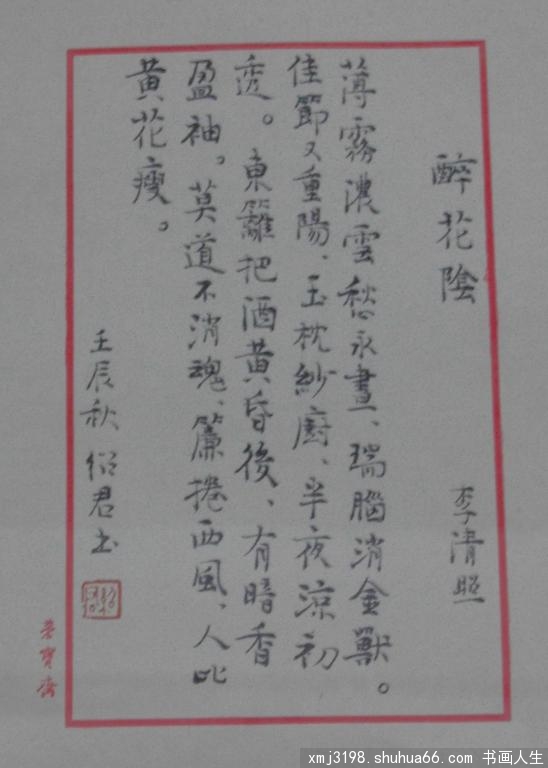 醉花陰
李清照
薄霧濃雲愁永晝、瑞腦消金獸。
佳節又重陽、玉枕紗廚、半夜涼初
透。東籬把酒黃昏後、有暗香
盈袖。莫道不消魂、簾捲西風、人比
黃花瘦。
壬辰秋 君书
荣寶齋
xmj3198.shuhua66.com 书画人生